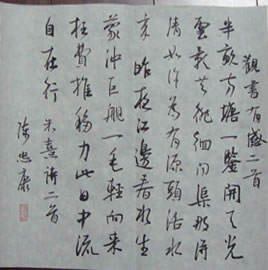 觀書有感二首
半畝方塘一鑒開天光
雲影共徘徊問渠那得
清如許為有源頭活水
來昨夜江邊春水生
蒙冲巨艦一毛輕向來
枉費推移力此日中流
自在行 朱熹詩二首
陳忠康